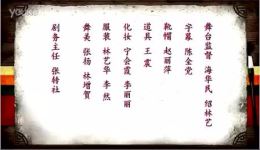 舞台监督 海华民 绍林艺
字幕 陈金党
靴帽 赵丽萍
道具 王震
化妆 宁会霞 李丽丽
服装 林艺华 李然
舞美 张扬 林增贺
剧务主任 张铃社